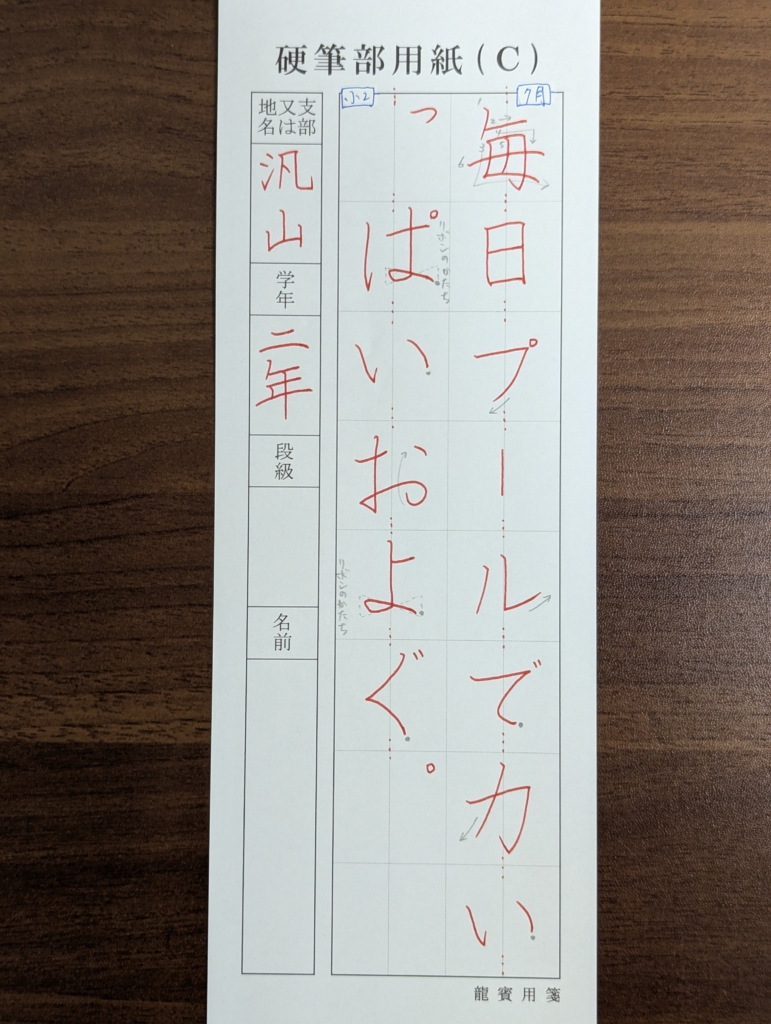 硬筆部用紙(C)
7月
小2
毎日プールで力い
っぱいおよぐ。
リボンのかたち
リボンのかたち
1
2
3
4
5
6
地名又は支部
汎山
学年
二年
段級
名前
龍賓用箋